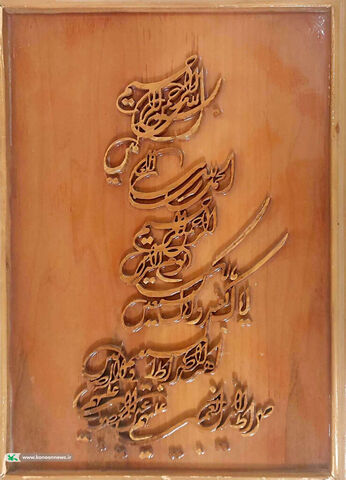 بسم الله الرحمن الرحیم
الحمد لله رب العالمین
الرحمن الرحیم
مالک یوم الدین
ایاک نعبد و ایاک نستعین
اهدنا الصراط المستقیم
صراط الذین انعمت علیهم غیر المغضوب علیهم ولا الضالین
www.kanoonnews.ir